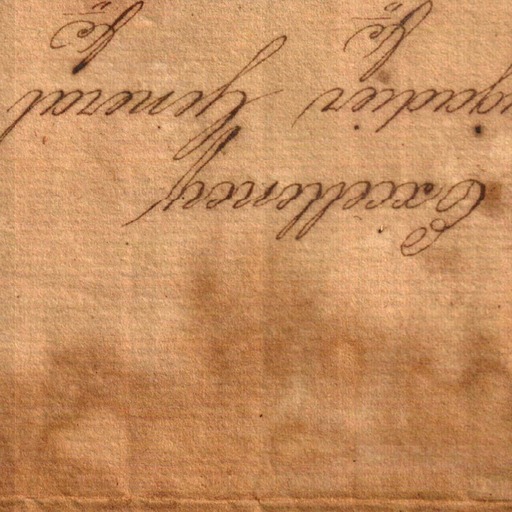 Excellency
gadier General
&c &c